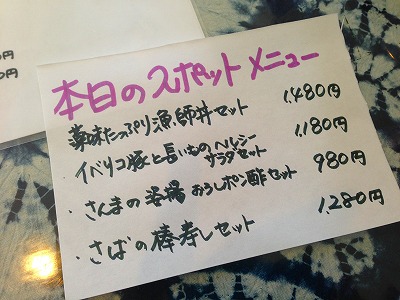 円
0円
本日のスポットメニュー
薬味たっぷり漁師丼セット 1,480円
・イベリコ豚と長いものヘルシーサラダセット 1,180円
・さんまの岩塩おろしポン酢セット 980円
・さばの棒寿しセット 1,280円